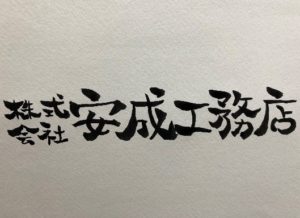 株式会社安成工務店